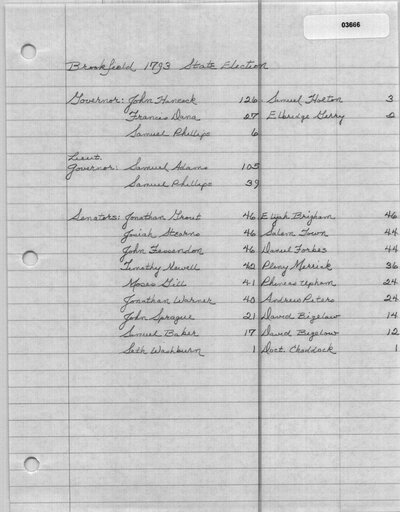 03666
Brookfield 1793 State Election
Governor: John Hancock 126 Samuel Holton 3
Frances Dana 27 Elbridge Gerry 2
Samuel Phillips 6
Lieut.
Governor: Samuel Adams 105
Samuel Phillips 39
Senators: Jonathan Grout 46 Elijah Brigham 46
Josiah Stearns 46 Salem Town 44
John Fessendon 46 Daniel Forbes 44
Timothy Newell 42 Pliny Merrick 36
Moses Gill 41 Phineas Upham 24
Jonathan Warner 40 Andrew Peters 24
John Sprague 21 David Bigelow 14
Samuel Baker 17 David Bigelow 12
Seth Washburn 1 Doct. Craddock 1